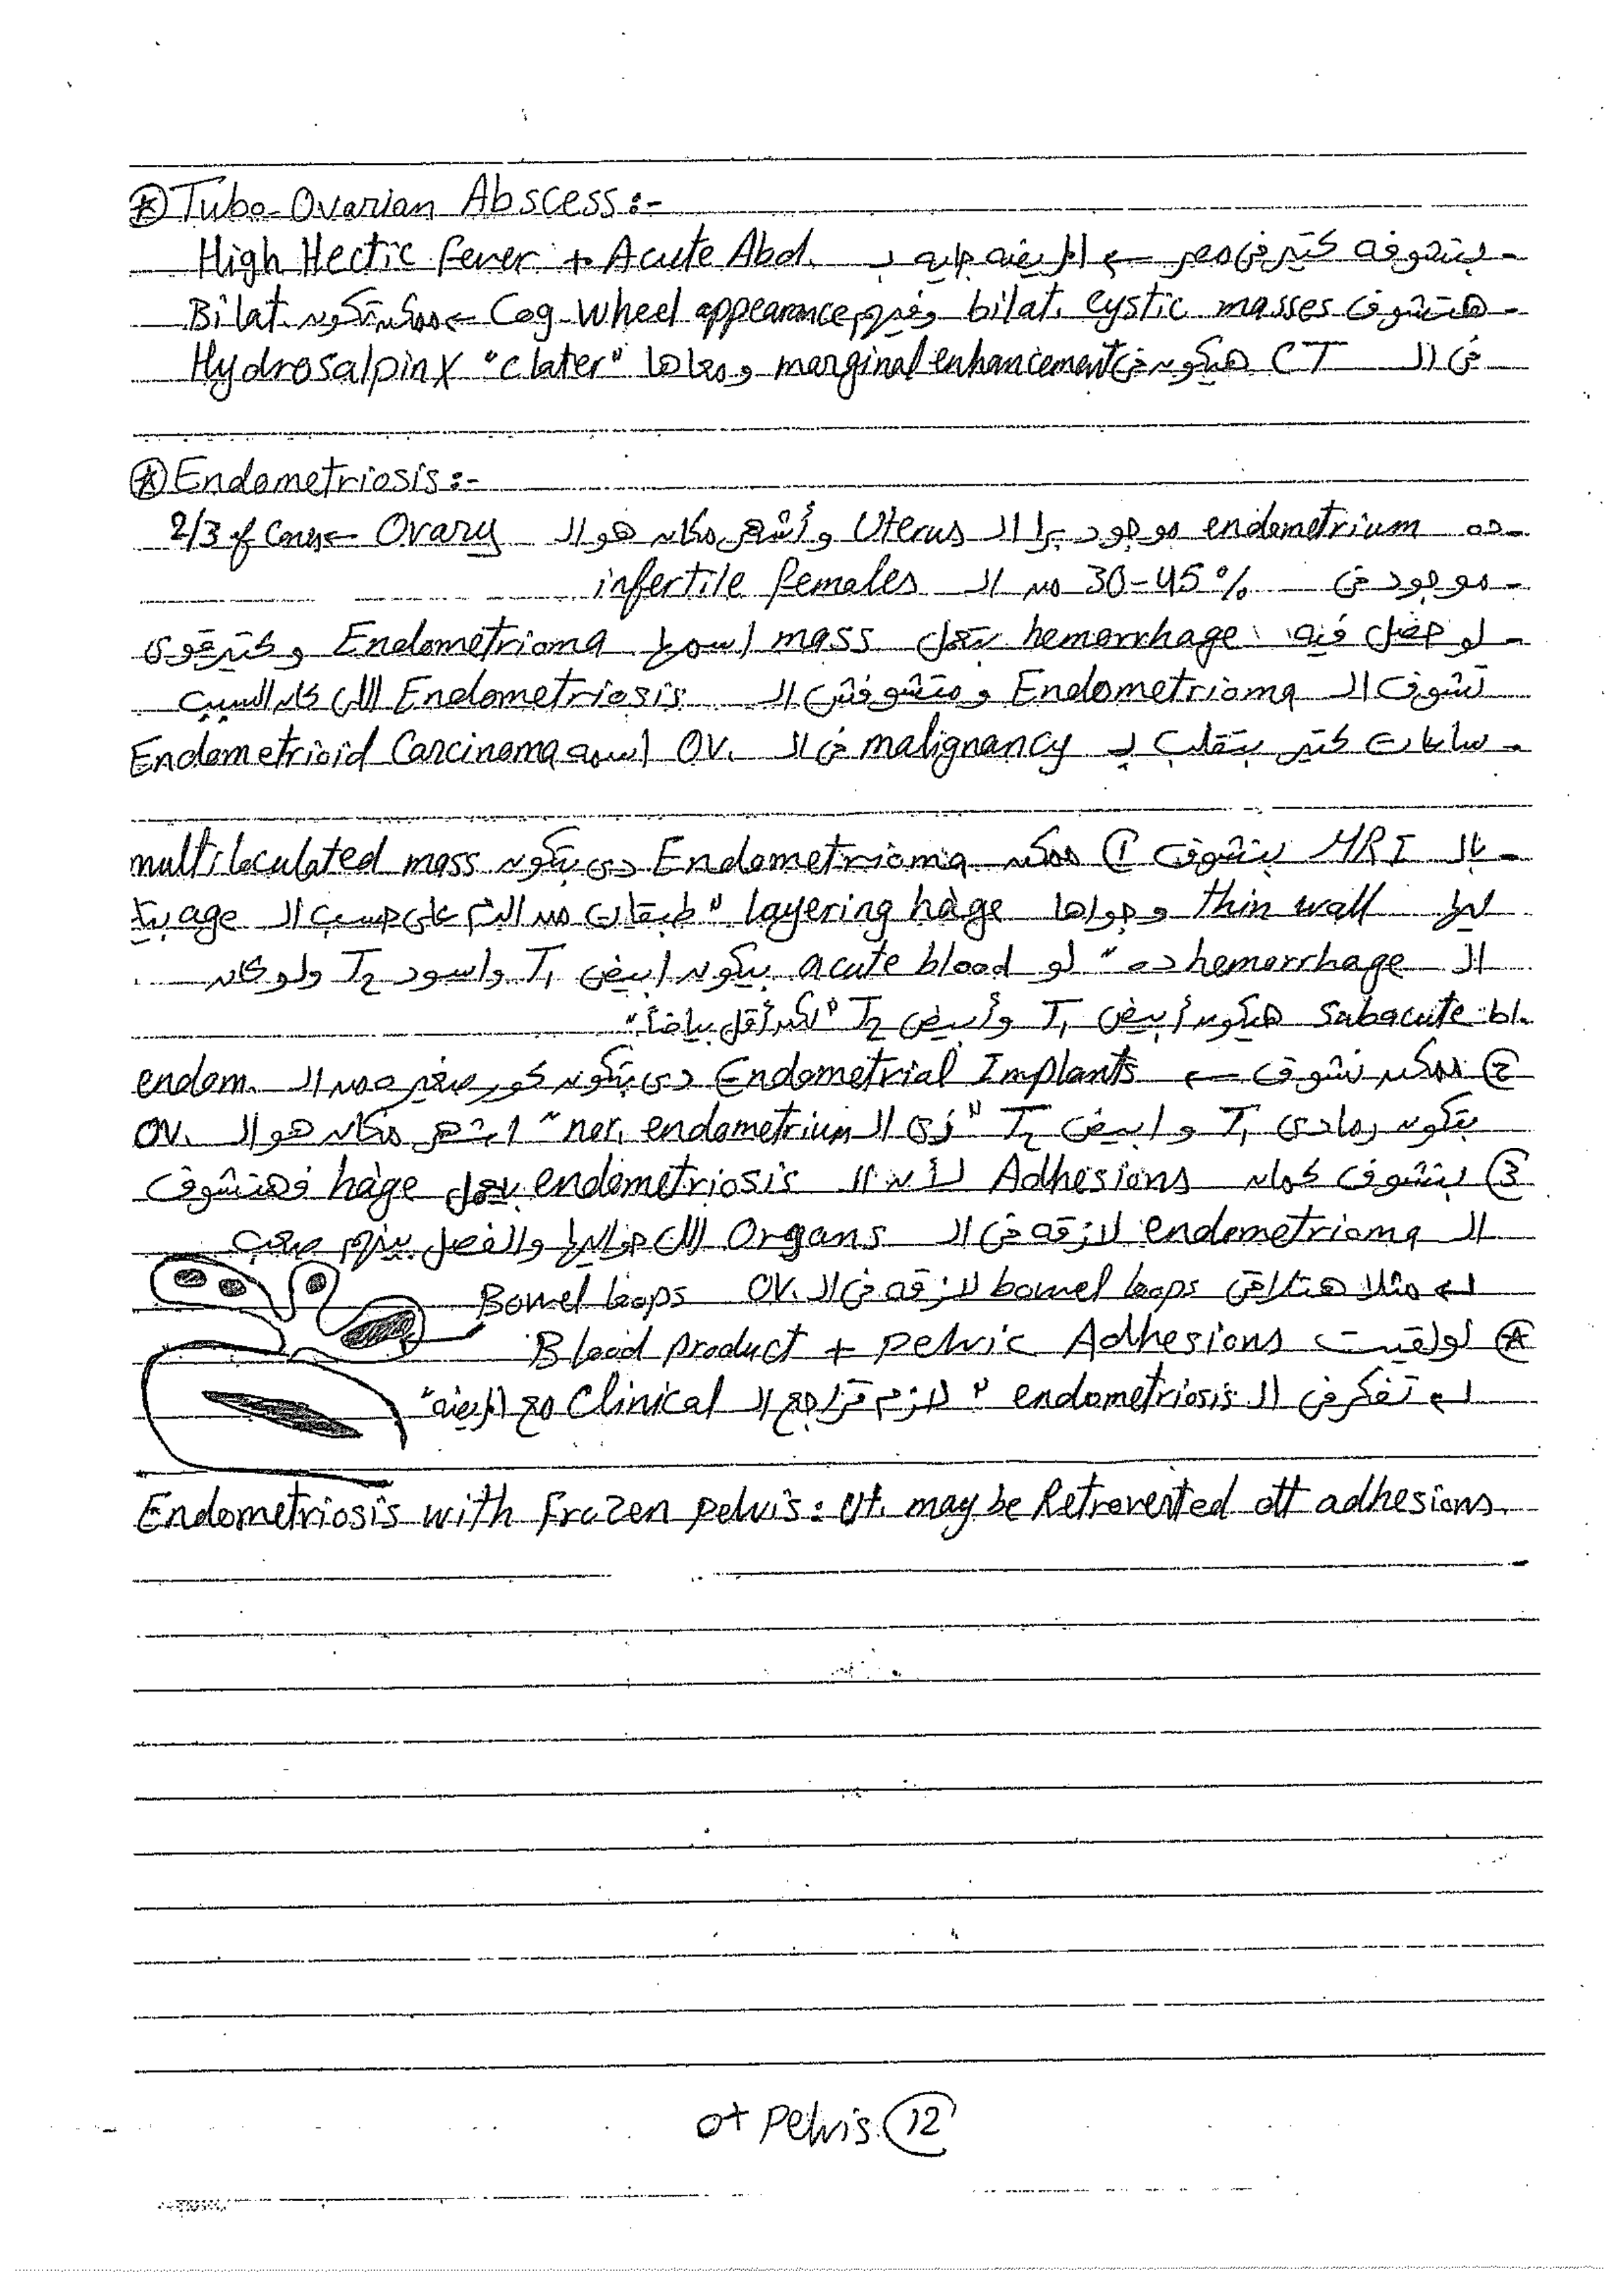 Tubo-Ovarian Abscess:-
- بنشوفه كتير في مصر ← المريضه جايه ب High Hectic fever + Acute Abd.
- هتشوف bilat. cystic masses وفيهم Cog Wheel appearance ← ممكن تكون Bilat.
في الـ CT هيكون في marginal enhancement ومعاها Hydrosalpinx "clater"
Endometriosis:-
- ده endometrium موجود برا الـ Uterus وأشهر مكان هو الـ Ovary ← 2/3 of cases
- موجود في 30-45% من الـ infertile females
- لو حصل فيه hemorrhage بتعمل mass اسمها Endometrioma وكتير قوى
تشوف الـ Endometrioma ومتشوفش الـ Endometriosis اللي كان السبب
- ساعات كتير بتقلب بـ malignancy في الـ OV. اسمه Endometrioid Carcinoma
- بالـ MRI بنشوف ① ممكن Endometrioma دي بتكون multiloculated mass
ليها thin wall وجواها layering hage "طبقات من الدم على حسب الـ age بتاع
الـ hemorrhage ده" لو acute blood بيكون ابيض T1 واسود T2 ولو كان
subacute bl. هيكون أبيض T1 وأبيض T2 "لكن أقل بياضاً"
② ممكن نشوف ← Endometrial Implants دي بتكون كور صغيره من الـ endom.
بتكون رمادى T1 وابيض T2 "زى الـ nor. endometrium" اشهر مكان هو الـ OV.
③ بنشوف كمان Adhesions لأن الـ endometriosis بيعمل hage فهتشوف
الـ endometrioma لازقه في الـ Organs اللي حواليها والفصل بينهم صعب
مثلا هتلاقي bowel loops لازقه في الـ OV.
Bowel loops
لو لقيت Blood product + pelvic Adhesions
تفكر في الـ endometriosis "لازم تراجع الـ Clinical مع المريضه"
Endometriosis with frozen pelvis: Ut. may be Retroverted ott adhesions.
Pelvis 12